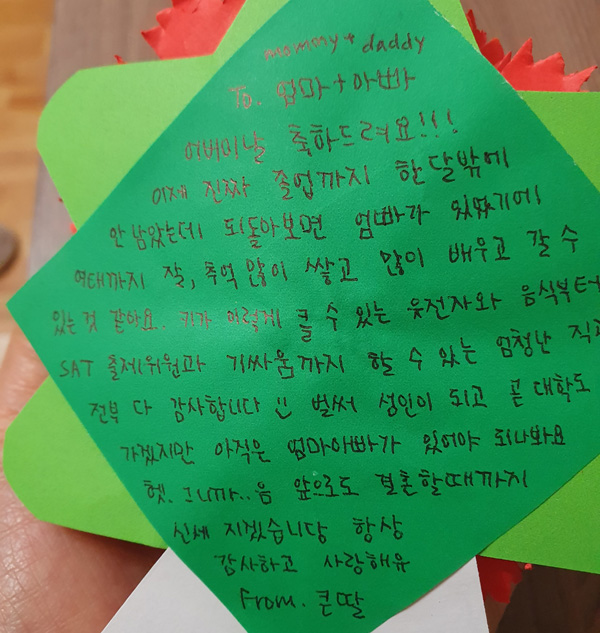 mommy + daddy
To. 엄마+아빠
어버이날 축하드려요!!!
이제 진짜 졸업까지 한달밖에
안 남았는데 되돌아보면 엄빠가 있었기에
여태까지 잘, 추억 많이 쌓고 많이 배우고 갈 수
있는 것 같아요.. 키가 이렇게 클 수 있는 유전자와 음식부터
SAT 출제위원과 기싸움까지 할 수 있는 엄청난
전부 다 감사합니다 :) 벌써 성인이 되고 곧 대학도
가겠지만 아직은 엄마아빠가 있어야 되나봐요
헷. 그니까..음 앞으로도 결혼할때까지
신세 지겠습니당 항상
감사하고 사랑해유
From. 큰딸